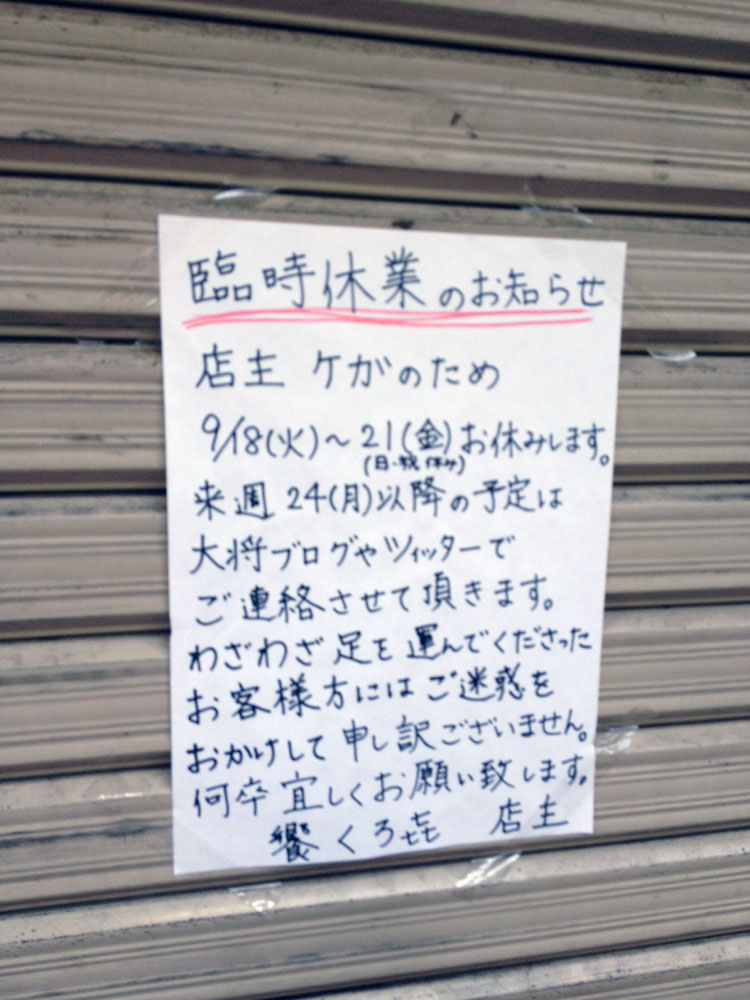 臨時休業のお知らせ
店主 ケガのため
9/18(火)〜21(金)お休みします。
来週 24(月)以降の予定は
大将ブログやツィッターで
ご連絡させて頂きます。
わざわざ足を運んでくださった
お客様方にはご迷惑を
おかけして申し訳ございません。
何卒宜しくお願い致します。
饗 くろ㐂 店主